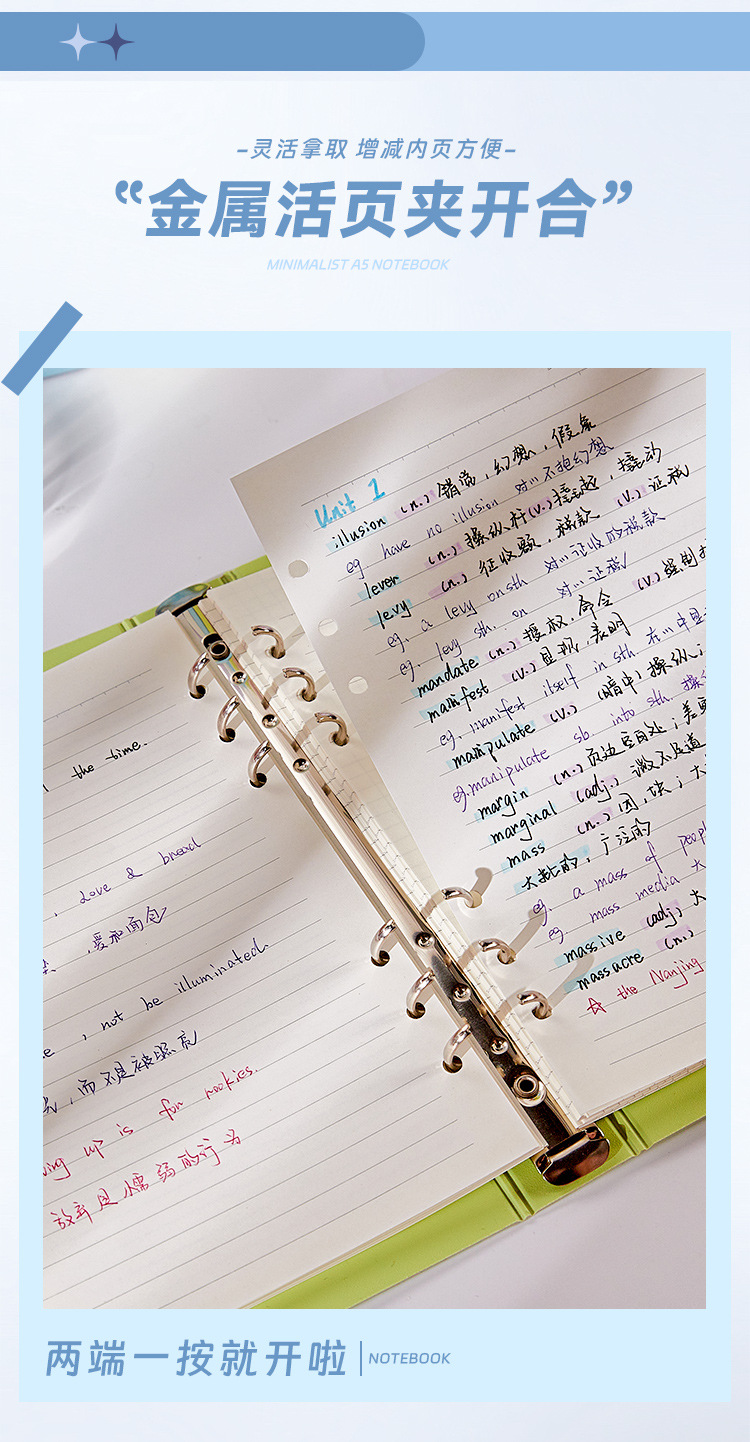 -灵活拿取 增减内页方便-
“金属活页夹开合”
MINIMALIST A5 NOTEBOOK
Unit 1
illusion (n.) 错觉，幻想，假象
eg. have no illusion 对…不抱幻想
lever (n.) 操纵杆 (v.)
levy (n.) 征收额，税款 (v.) 征税
eg. a levy on sth 对…征收的税款
eg. levy sth. on 对…征税
mandate (n.) 授权，命令 (v.)
manifest (v.) 显现，表明
eg. manifest itself in sth. 在…中显
manipulate (v.) (暗中)操纵；
eg. manipulate sb into sth.
margin (n.) 页边空白处；差
marginal (adj.) 微不足道
mass (n.) 团，块；大
大批的，广泛的
eg. a mass of peop
eg. mass media 大
massive (adj.) 大
massacre (n.)
☆ the Nanjing
the time.
, Love & bread
，爱和面包
, not be illuminated.
，而不是被照亮
ving up is for rookies.
放弃是懦弱的行为
两端一按就开啦 | NOTEBOOK